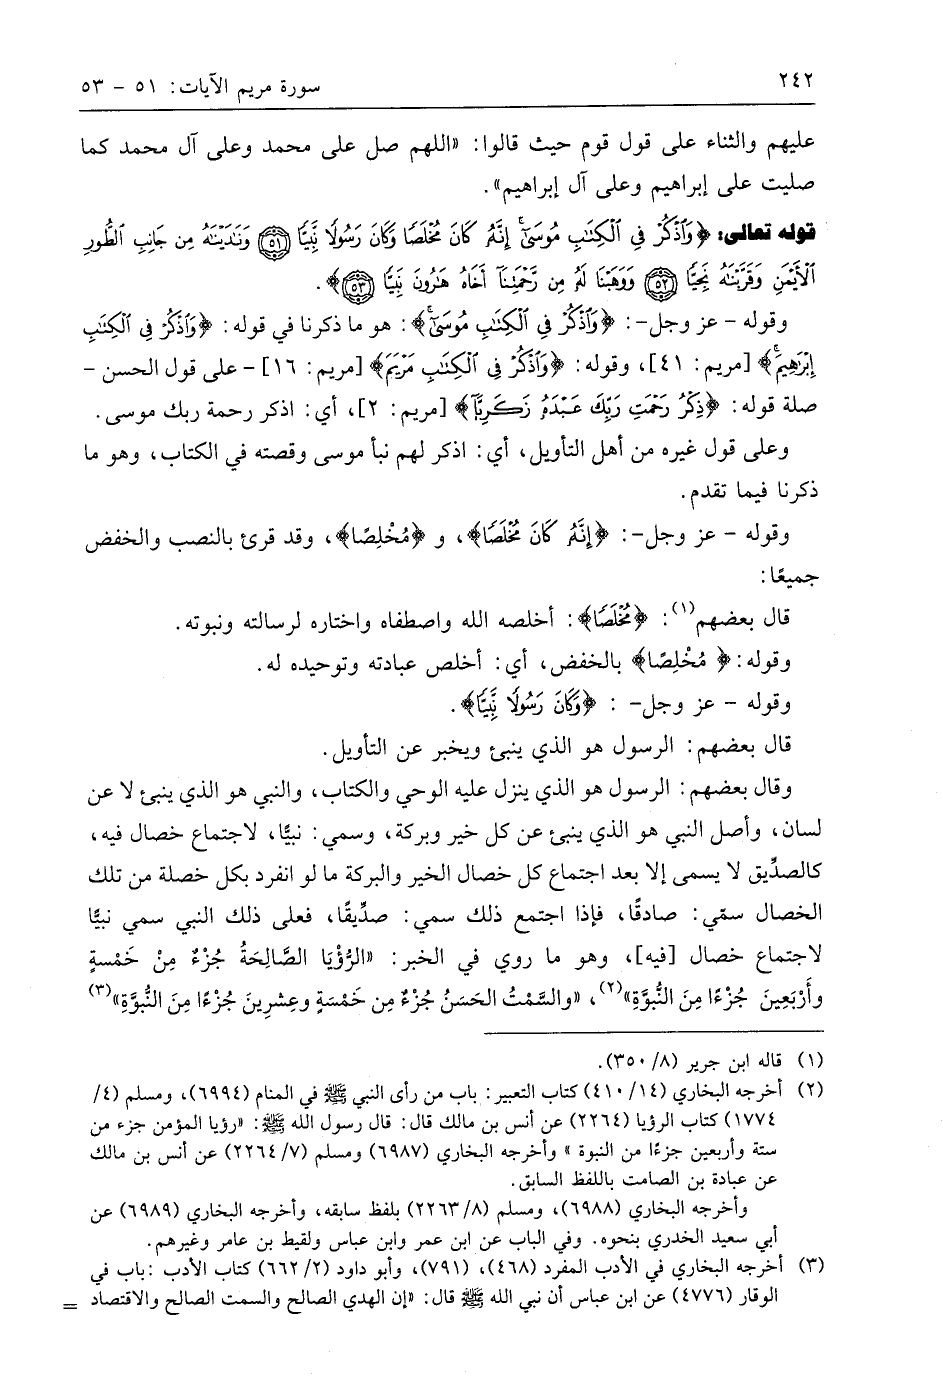 ٢٤٢
سورة مريم الآيات: ٥١ - ٥٣
عليهم والثناء على قول قوم حيث قالوا: «اللهم صل على محمد وعلى آل محمد كما
صليت على إبراهيم وعلى آل إبراهيم».
قوله تعالى: ﴿وَٱذۡكُرۡ فِي ٱلۡكِتَٰبِ مُوسَىٰٓۚ إِنَّهُۥ كَانَ مُخۡلَصٗا وَكَانَ رَسُولٗا نَّبِيّٗا ٥١ وَنَٰدَيۡنَٰهُ مِن جَانِبِ ٱلطُّورِ
ٱلۡأَيۡمَنِ وَقَرَّبۡنَٰهُ نَجِيّٗا ٥٢ وَوَهَبۡنَا لَهُۥ مِن رَّحۡمَتِنَآ أَخَاهُ هَٰرُونَ نَبِيّٗا ٥٣﴾.
وقوله - عز وجل-: ﴿وَٱذۡكُرۡ فِي ٱلۡكِتَٰبِ مُوسَىٰٓۚ﴾: هو ما ذكرنا في قوله: ﴿وَٱذۡكُرۡ فِي ٱلۡكِتَٰبِ
إِبۡرَٰهِيمَۚ﴾ [مريم: ٤١]، وقوله: ﴿وَٱذۡكُرۡ فِي ٱلۡكِتَٰبِ مَرۡيَمَ﴾ [مريم: ١٦] - على قول الحسن -
صلة قوله: ﴿ذِكۡرُ رَحۡمَتِ رَبِّكَ عَبۡدَهُۥ زَكَرِيَّآ﴾ [مريم: ٢]، أي: اذكر رحمة ربك موسى.
وعلى قول غيره من أهل التأويل، أي: اذكر لهم نبأ موسى وقصته في الكتاب، وهو ما
ذكرنا فيما تقدم.
وقوله - عز وجل-: ﴿إِنَّهُۥ كَانَ مُخۡلَصٗا﴾، و ﴿مُخْلِصًا﴾، وقد قرئ بالنصب والخفض
جميعًا:
قال بعضهم(١): ﴿مُخۡلَصٗا﴾: أخلصه الله واصطفاه واختاره لرسالته ونبوته.
وقوله: ﴿ مُخْلِصًا﴾ بالخفض، أي: أخلص عبادته وتوحيده له.
وقوله - عز وجل- : ﴿وَكَانَ رَسُولٗا نَّبِيّٗا﴾.
قال بعضهم: الرسول هو الذي ينبئ ويخبر عن التأويل.
وقال بعضهم: الرسول هو الذي ينزل عليه الوحي والكتاب، والنبي هو الذي ينبئ لا عن
لسان، وأصل النبي هو الذي ينبئ عن كل خير وبركة، وسمي: نبيًّا، لاجتماع خصال فيه،
كالصدِّيق لا يسمى إلا بعد اجتماع كل خصال الخير والبركة ما لو انفرد بكل خصلة من تلك
الخصال سمّي: صادقًا، فإذا اجتمع ذلك سمي: صدِّيقًا، فعلى ذلك النبي سمي نبيًّا
لاجتماع خصال [فيه]، وهو ما روي في الخبر: «الرُّؤْيَا الصَّالِحَةُ جُزْءٌ مِنْ خَمْسةٍ
وأَرْبَعِينَ جُزْءًا مِنَ النُّبوَّةِ»(٢)، «والسَّمْتُ الحَسَنُ جُزْءٌ مِن خَمْسَةٍ وعِشرِينَ جُزْءًا مِنَ النُّبوَّةِ»(٣)
(١) قاله ابن جرير (٨/ ٣٥٠).
(٢) أخرجه البخاري (١٤/ ٤١٠) كتاب التعبير: باب من رأى النبي ﷺ في المنام (٦٩٩٤)، ومسلم (٤/
١٧٧٤) كتاب الرؤيا (٢٢٦٤) عن أنس بن مالك قال: قال رسول الله ﷺ: «رؤيا المؤمن جزء من
ستة وأربعين جزءًا من النبوة » وأخرجه البخاري (٦٩٨٧) ومسلم (٧/ ٢٢٦٤) عن أنس بن مالك
عن عبادة بن الصامت باللفظ السابق.
وأخرجه البخاري (٦٩٨٨)، ومسلم (٨/ ٢٢٦٣) بلفظ سابقه، وأخرجه البخاري (٦٩٨٩) عن
أبي سعيد الخدري بنحوه. وفي الباب عن ابن عمر وابن عباس ولقيط بن عامر وغيرهم.
(٣) أخرجه البخاري في الأدب المفرد (٤٦٨)، (٧٩١)، وأبو داود (٢/ ٦٦٢) كتاب الأدب :باب في
الوقار (٤٧٧٦) عن ابن عباس أن نبي الله ﷺ قال: «إن الهدي الصالح والسمت الصالح والاقتصاد =